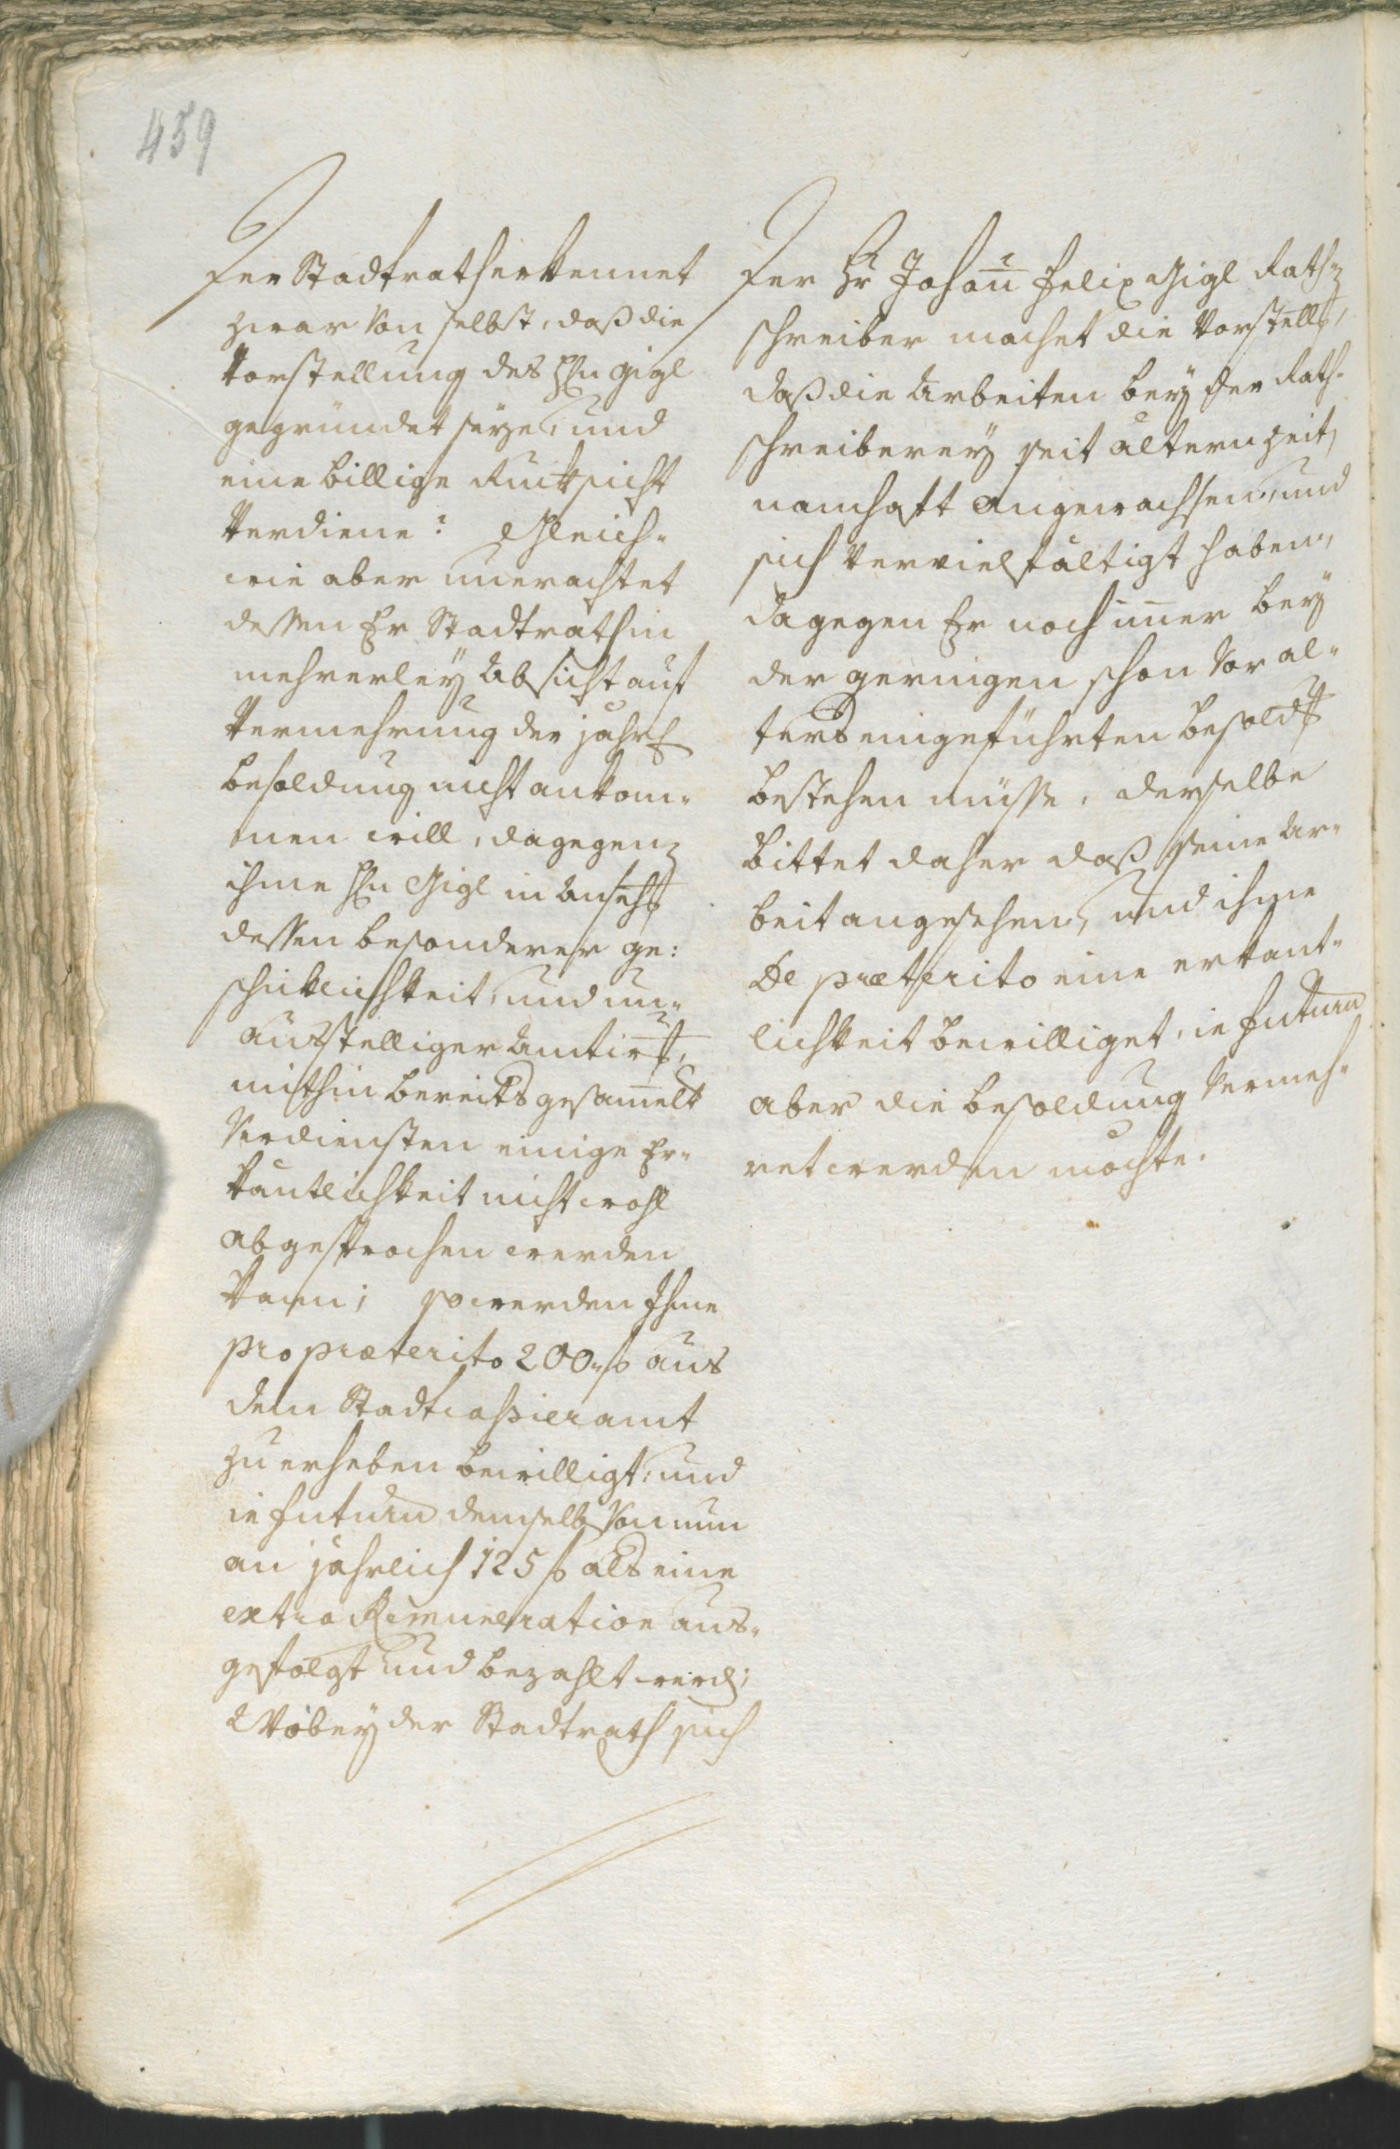 459
Der Stadtrath erkennet
zwar von selbst, daß die
Vorstellung des Hn Gigl
gegründet seye, und
eine billige Rucksicht
verdiene? Gleich-
wie aber unerachtet
dessen Er Stadtrath in
mehrerley Absicht auf
Vermehrung der jährl
besoldung nicht ankom-
men will, dagegen
ihme Hn Gigl in Anseh
dessen besonderer ge:
schiklichkeit, und un-
ausstelliger Amtir
mithin bereits gesam̅elt
Verdiensten einige Er-
kantlichkeit nicht wohl
abgesprochen werden
kann; so werden Ihme
pro præterito 200 f aus
dem Stadtcassieramt
zu erheben bewilligt, und
in futurum demselb von nun
an jährlich 125 f als eine
extra Remuneration aus-
gefolgt und bezahlt werd;
Wobey der Stadtrath sich
Der Hr Johan̅ Felix Gigl Rath-
schreiber machet die Vorstell,
daß die Arbeiten bey der Rath-
schreiberey seit älterer zeit,
namhaft angewachsen, und
sich vervielfältigt haben,
dagegen Er noch im̅er bey
der geringen schon vor al-
ters eingeführten besold
bestehen müsse. derselbe
bittet daher daß seine Ar-
beit angesehen, und ihme
De præterito eine erkant-
lichkeit bewilliget, in futurum
aber die besoldung vermeh-
ret werden möchte.